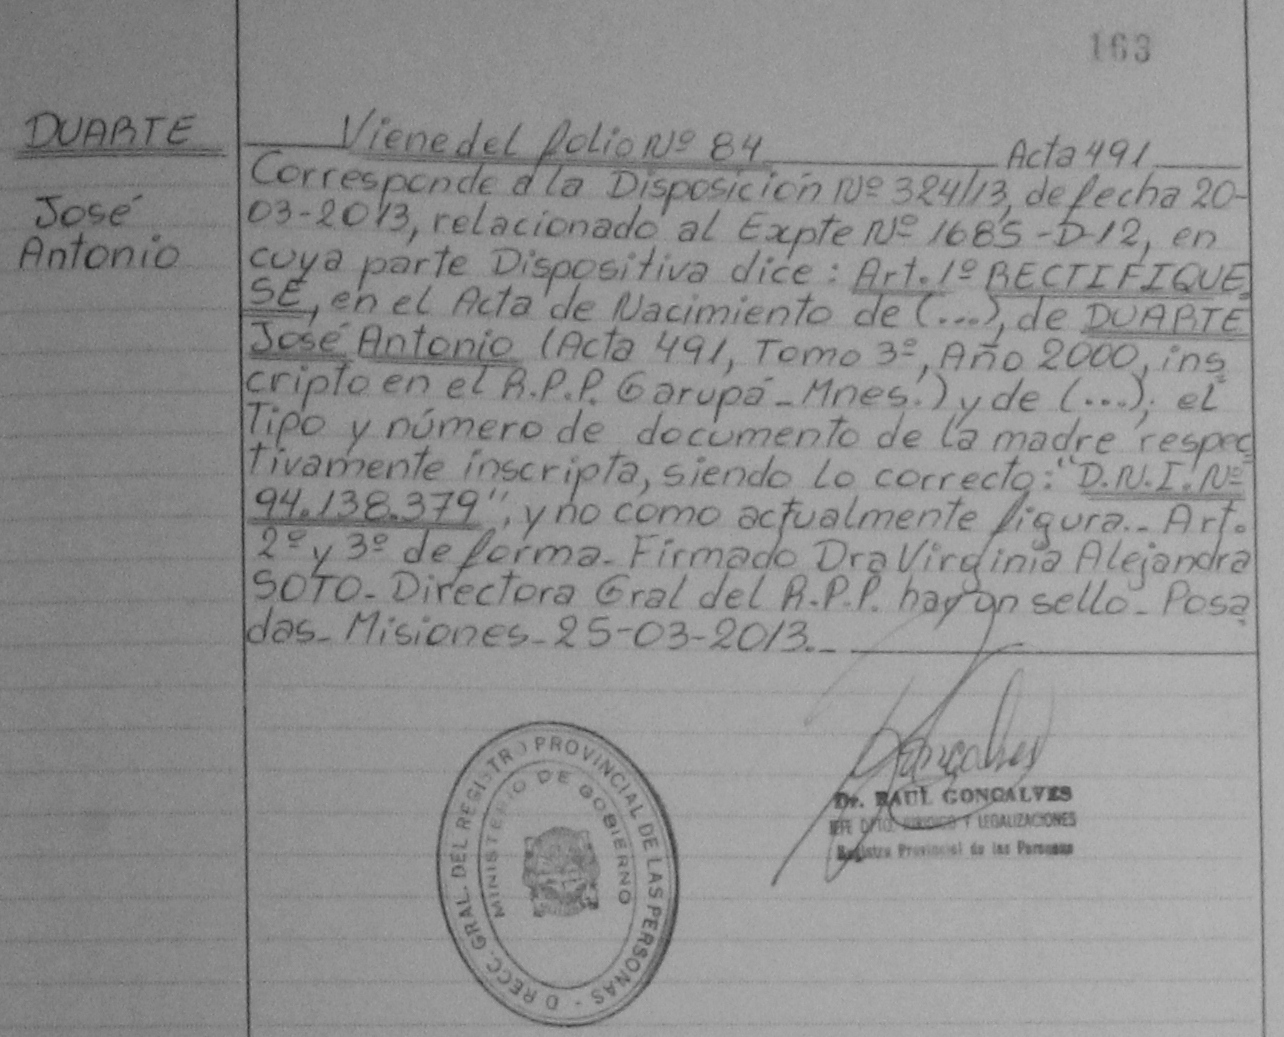 163
DUARTE
José
Antonio
Viene del folio Nº 84 Acta 491
Corresponde a la Disposición Nº 324/13, de fecha 20-
03-2013, relacionado al Expte Nº 1685-D-12, en
cuya parte Dispositiva dice: Art. 1º RECTIFIQUE
SE, en el Acta de Nacimiento de (...), de DUARTE
José Antonio (Acta 491, Tomo 3º, Año 2000, ins
cripto en el R.P.P. Garupá - Mnes.) y de (...); el
Tipo y número de documento de la madre respec
tivamente inscripta, siendo lo correcto: "D.N.I. Nº
94.138.379", y no como actualmente figura.- Art.
2º y 3º de forma- Firmado Dra Virginia Alejandra
SOTO- Directora Gral del R.P.P. hay un sello- Posa
das- Misiones- 25-03-2013.-
DIRECC. GRAL. DEL REGISTRO PROVINCIAL DE LAS PERSONAS -
MINISTERIO DE GOBIERNO
Dr. RAUL GONCALVES
JEFE DPTO. JURIDICO Y LEGALIZACIONES
Registro Provincial de las Personas